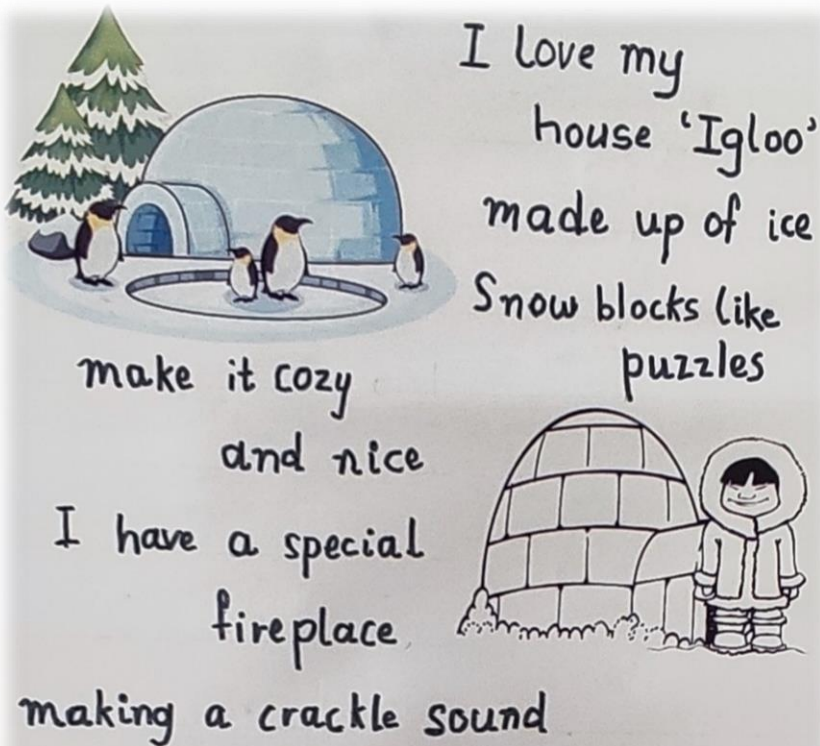 I love my
house 'Igloo'
made up of ice
Snow blocks like
puzzles
make it cozy
and nice
I have a special
fireplace
making a crackle sound